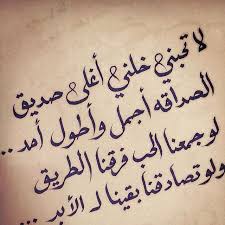 لا تجبني خلني أغلى صديق
الصداقه أجمل وأطول أمد ..
لو جمعنا الحب فرقنا الطريق
ولو تصادقنا بقينا لـ الأبد ...